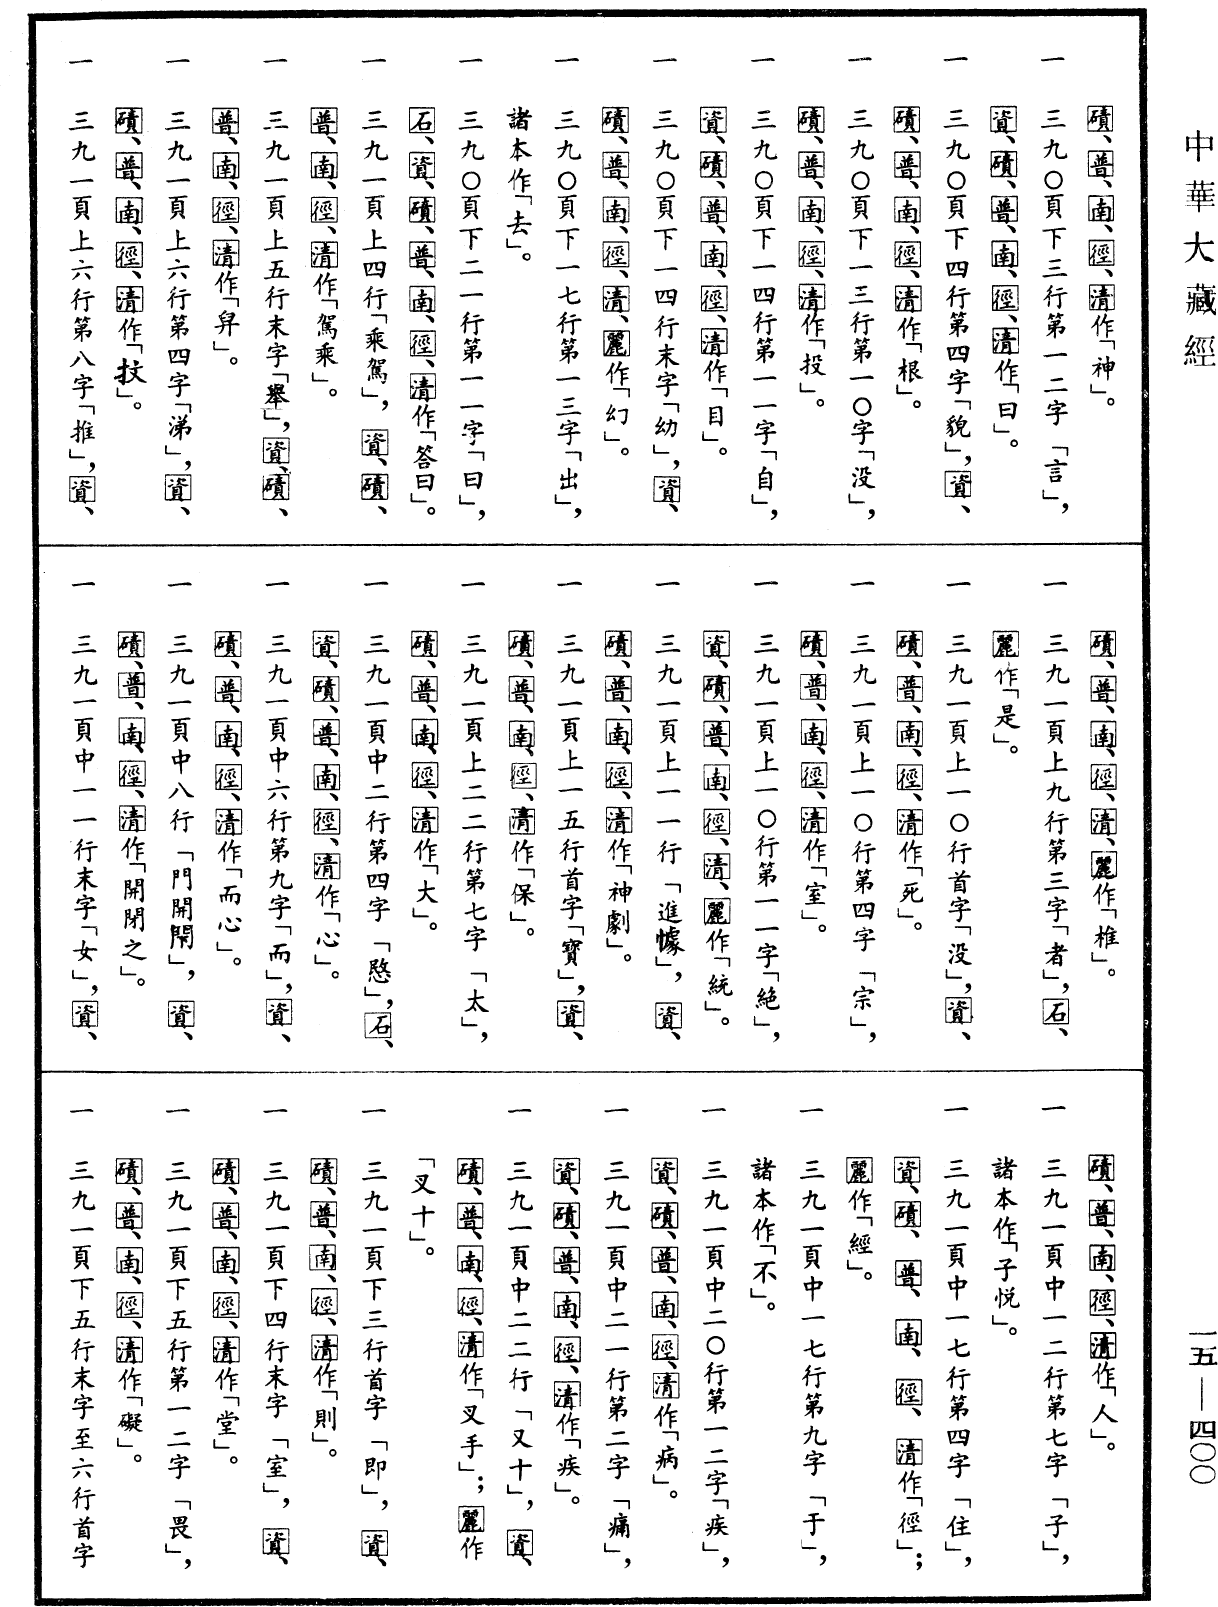 中華大藏經
磧、普、南、徑、清作「神」。
一　三九〇頁下三行第一二字「言」，
資、磧、普、南、徑、清作「曰」。
一　三九〇頁下四行第四字「貌」，資、
磧、普、南、徑、清作「根」。
一　三九〇頁下一三行第一〇字「没」，
磧、普、南、徑、清作「投」。
一　三九〇頁下一四行第一一字「自」，
資、磧、普、南、徑、清作「目」。
一　三九〇頁下一四行末字「幼」，資、
磧、普、南、徑、清、麗作「幻」。
一　三九〇頁下一七行第一三字「出」，
諸本作「去」。
一　三九〇頁下二一行第一一字「曰」，
石、資、磧、普、南、徑、清作「答曰」。
一　三九一頁上四行「乘駕」，資、磧、
普、南、徑、清作「駕乘」。
一　三九一頁上五行末字「舉」，資、磧、
普、南、徑、清作「昇」。
一　三九一頁上六行第四字「涕」，資、
磧、普、南、徑、清作「抆」。
一　三九一頁上六行第八字「推」，資、
磧、普、南、徑、清、麗作「椎」。
一　三九一頁上九行第三字「者」，石、
麗作「是」。
一　三九一頁上一〇行首字「没」，資、
磧、普、南、徑、清作「死」。
一　三九一頁上一〇行第四字「宗」，
磧、普、南、徑、清作「室」。
一　三九一頁上一〇行第一一字「絶」，
資、磧、普、南、徑、清、麗作「統」。
一　三九一頁上一一行「進懅」，資、
磧、普、南、徑、清作「神劇」。
一　三九一頁上一五行首字「寳」，資、
磧、普、南、徑、清作「保」。
一　三九一頁上二二行第七字「太」，
磧、普、南、徑、清作「大」。
一　三九一頁中二行第四字「愍」，石、
資、磧、普、南、徑、清作「心」。
一　三九一頁中六行第九字「而」，資、
磧、普、南、徑、清作「而心」。
一　三九一頁中八行「門開閇」，資、
磧、普、南、徑、清作「開閉之」。
一　三九一頁中一一行末字「女」，資、
磧、普、南、徑、清作「人」。
一　三九一頁中一二行第七字「子」，
諸本作「子悦」。
一　三九一頁中一七行第四字「住」，
資、磧、普、南、徑、清作「徑」；
麗作「經」。
一　三九一頁中一七行第九字「于」，
諸本作「不」。
一　三九一頁中二〇行第一二字「疾」，
資、磧、普、南、徑、清作「病」。
一　三九一頁中二一行第二字「痛」，
資、磧、普、南、徑、清作「疾」。
一　三九一頁中二二行「又十」，資、
磧、普、南、徑、清作「叉手」；麗作
「叉十」。
一　三九一頁下三行首字「即」，資、
磧、普、南、徑、清作「則」。
一　三九一頁下四行末字「室」，資、
磧、普、南、徑、清作「堂」。
一　三九一頁下五行第一二字「畏」，
磧、普、南、徑、清作「礙」。
一　三九一頁下五行末字至六行首字
一五—四〇〇